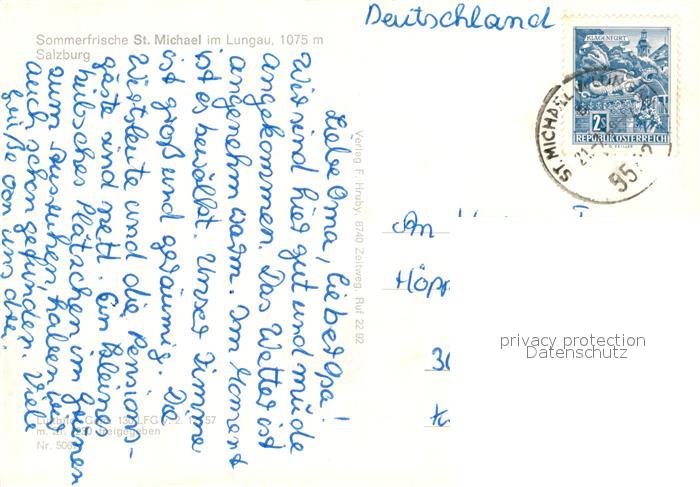 Sommerfrische St. Michael im Lungau, 1075 m
Salzburg
Deutschland
KLAGENFURT
2 S
REPUBLIK ÖSTERREICH
ST. MICHAEL
Liebe Oma, lieber Opa!
Wir sind hier gut und müde
angekommen. Das Wetter ist
angenehm warm. Im Moment
ist es bewölkt. Unser Zimmer
ist groß und geräumig. Die
Wirtsleute und die Pensions-
gäste sind nett. Ein kleines
hübsches Plätzchen im Grünen
zum Ausruhen, haben wir
auch schon gefunden. Viele
Grüße von uns drei.
Verlag F. Hruby, 8740 Zeltweg, Ruf 22 92
An
Höpp
30
privacy protection
Datenschutz
freigegeben
Nr. 506